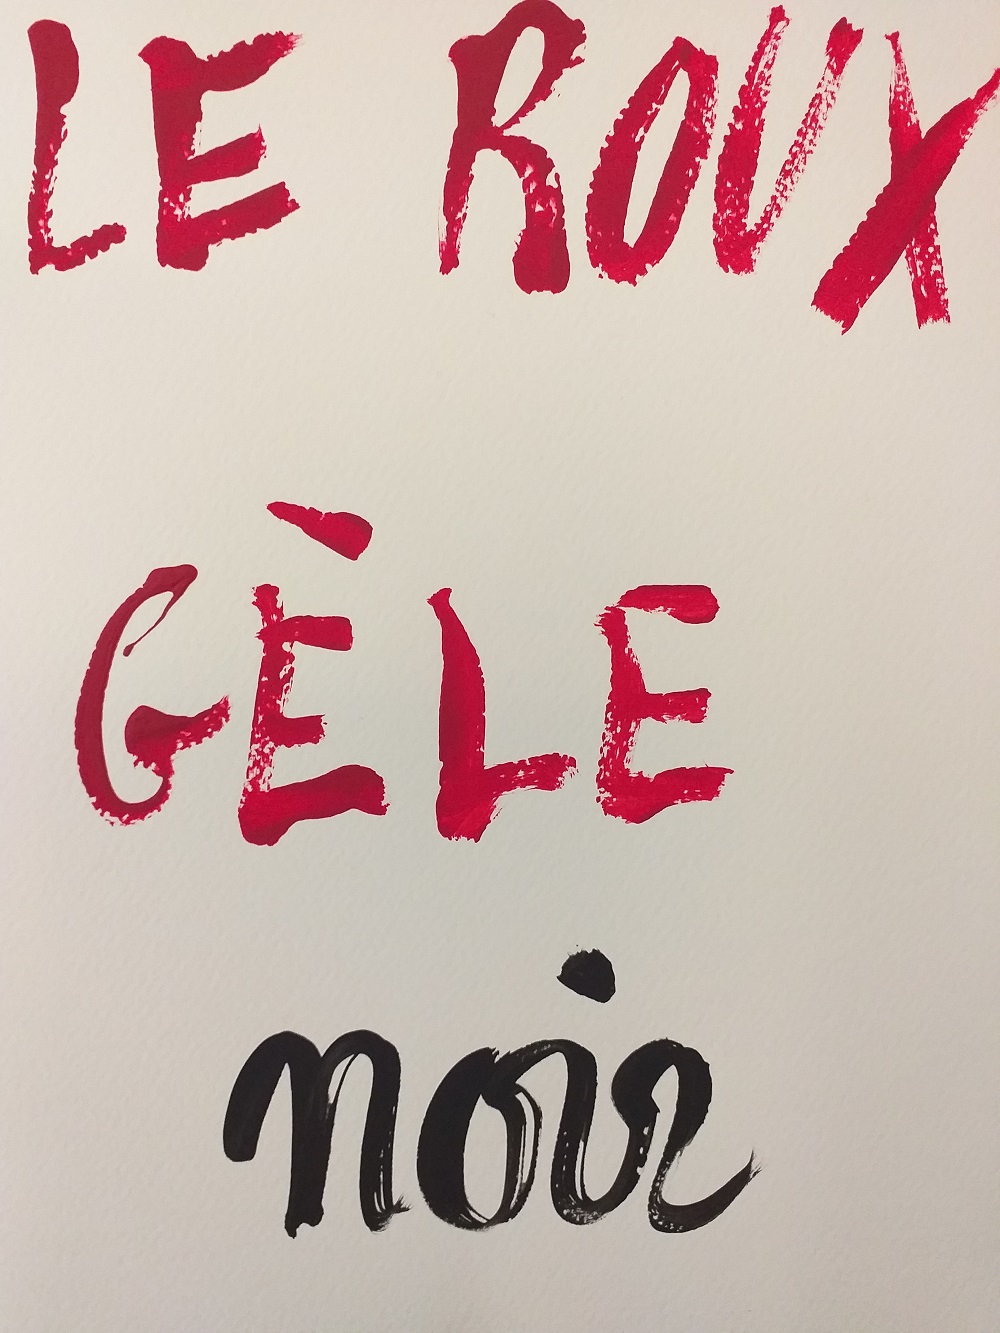 LE ROUX
GÈLE
noir